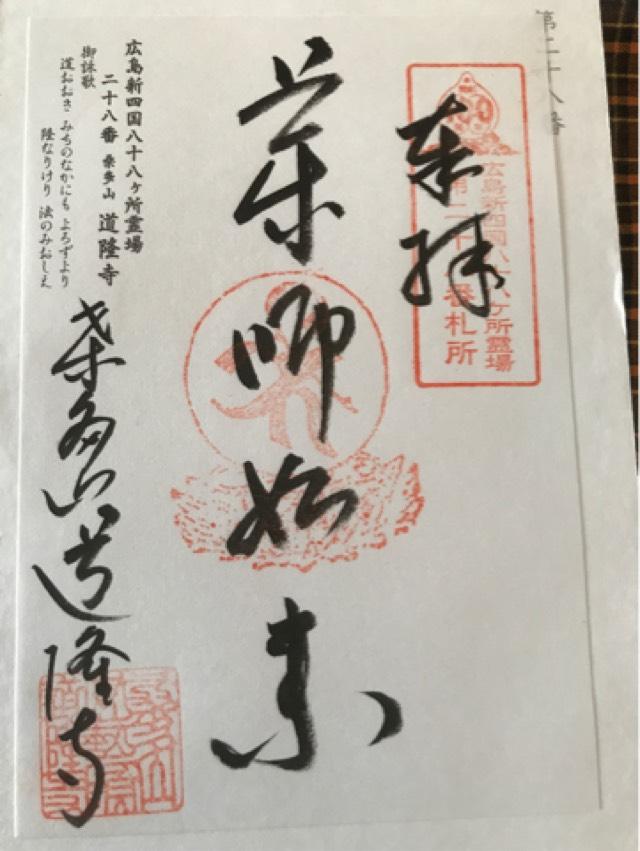 第二十八番
広島新四国八十八ヶ所霊場
第二十八番札所
奉拝
薬師如来
広島新四国八十八ヶ所霊場
二十八番 桑多山 道隆寺
御詠歌
道おおき みちのなかにも よろずより
隆なりけり 法のみおしえ
桑多山道隆寺